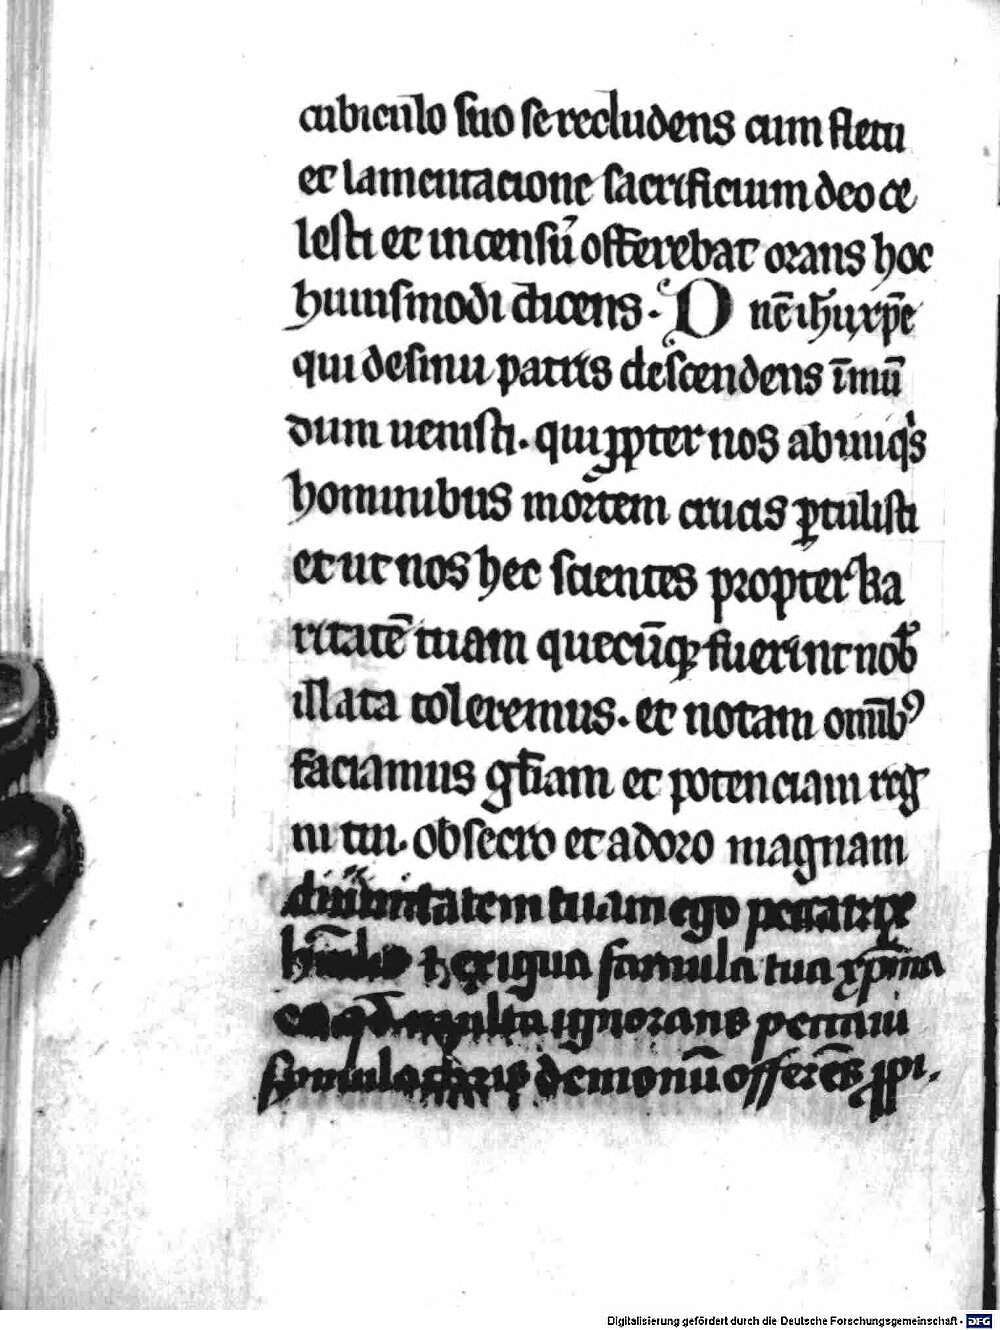 cubiculo suo se recludens cum fletu
et lamentacione sacrificium deo ce
lesti et incensū offerebat orans hoc
huiusmodi dicens. D nē ihū xp̄e
qui de sinu patris descendens ī mū
dum uenisti. qui ꝓpter nos ab iniqꝰs
hominibus mortem crucis ꝑtulisti
et ut nos hec scientes propter ka
ritatē tuam quecūqꝫ fuerint nob̄
illata toleremus. et notam om̄ibꝰ
faciamus gl̄iam et potenciam reg
ni tui. obsecro et adoro magnam
diuinitatem tuam ego peccatrix
⁊ exigua famula tua xp̄ina
ignorans peccaui
simulachris demonū offerēs ꝓpi.
Digitalisierung gefördert durch die Deutsche Forschungsgemeinschaft - DFG